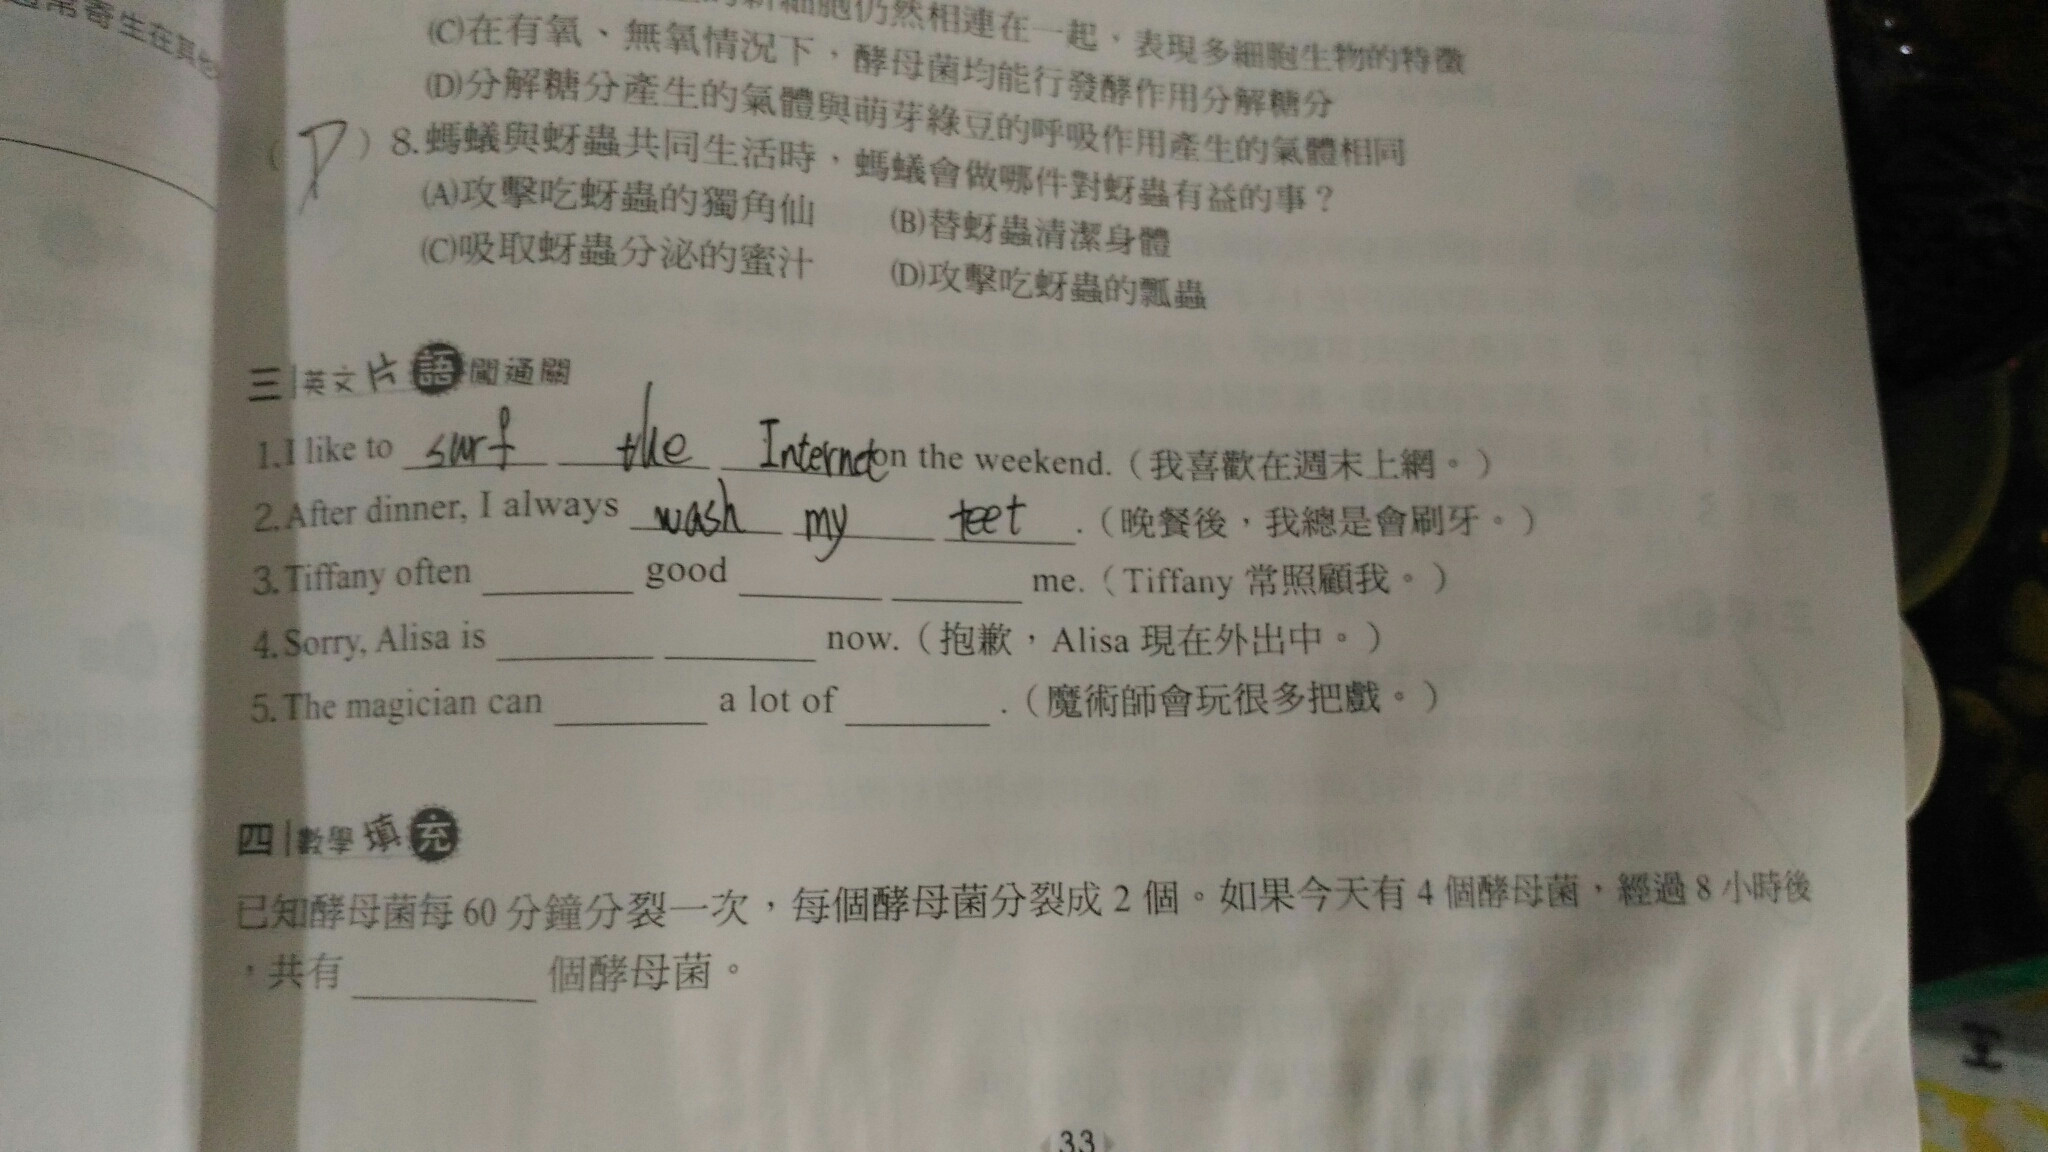 常寄生在其他
新細胞仍然相連在一起，表現多細胞生物的特徵
(C)在有氧、無氧情況下，酵母菌均能行發酵作用分解糖分
(D)分解糖分產生的氣體與萌芽綠豆的呼吸作用產生的氣體相同
( D ) 8.螞蟻與蚜蟲共同生活時，螞蟻會做哪件對蚜蟲有益的事？
(A)攻擊吃蚜蟲的獨角仙 (B)替蚜蟲清潔身體
(C)吸取蚜蟲分泌的蜜汁 (D)攻擊吃蚜蟲的瓢蟲
三 英文片語闖通關
1.I like to surf the Internet on the weekend.（我喜歡在週末上網。）
2.After dinner, I always wash my teet .（晚餐後，我總是會刷牙。）
3.Tiffany often ______ good ______ ______ me.（Tiffany 常照顧我。）
4.Sorry, Alisa is ______ ______ now.（抱歉，Alisa 現在外出中。）
5.The magician can ______ a lot of ______ .（魔術師會玩很多把戲。）
四 數學填充
已知酵母菌每 60 分鐘分裂一次，每個酵母菌分裂成 2 個。如果今天有 4 個酵母菌，經過 8 小時後
，共有 ______ 個酵母菌。
33